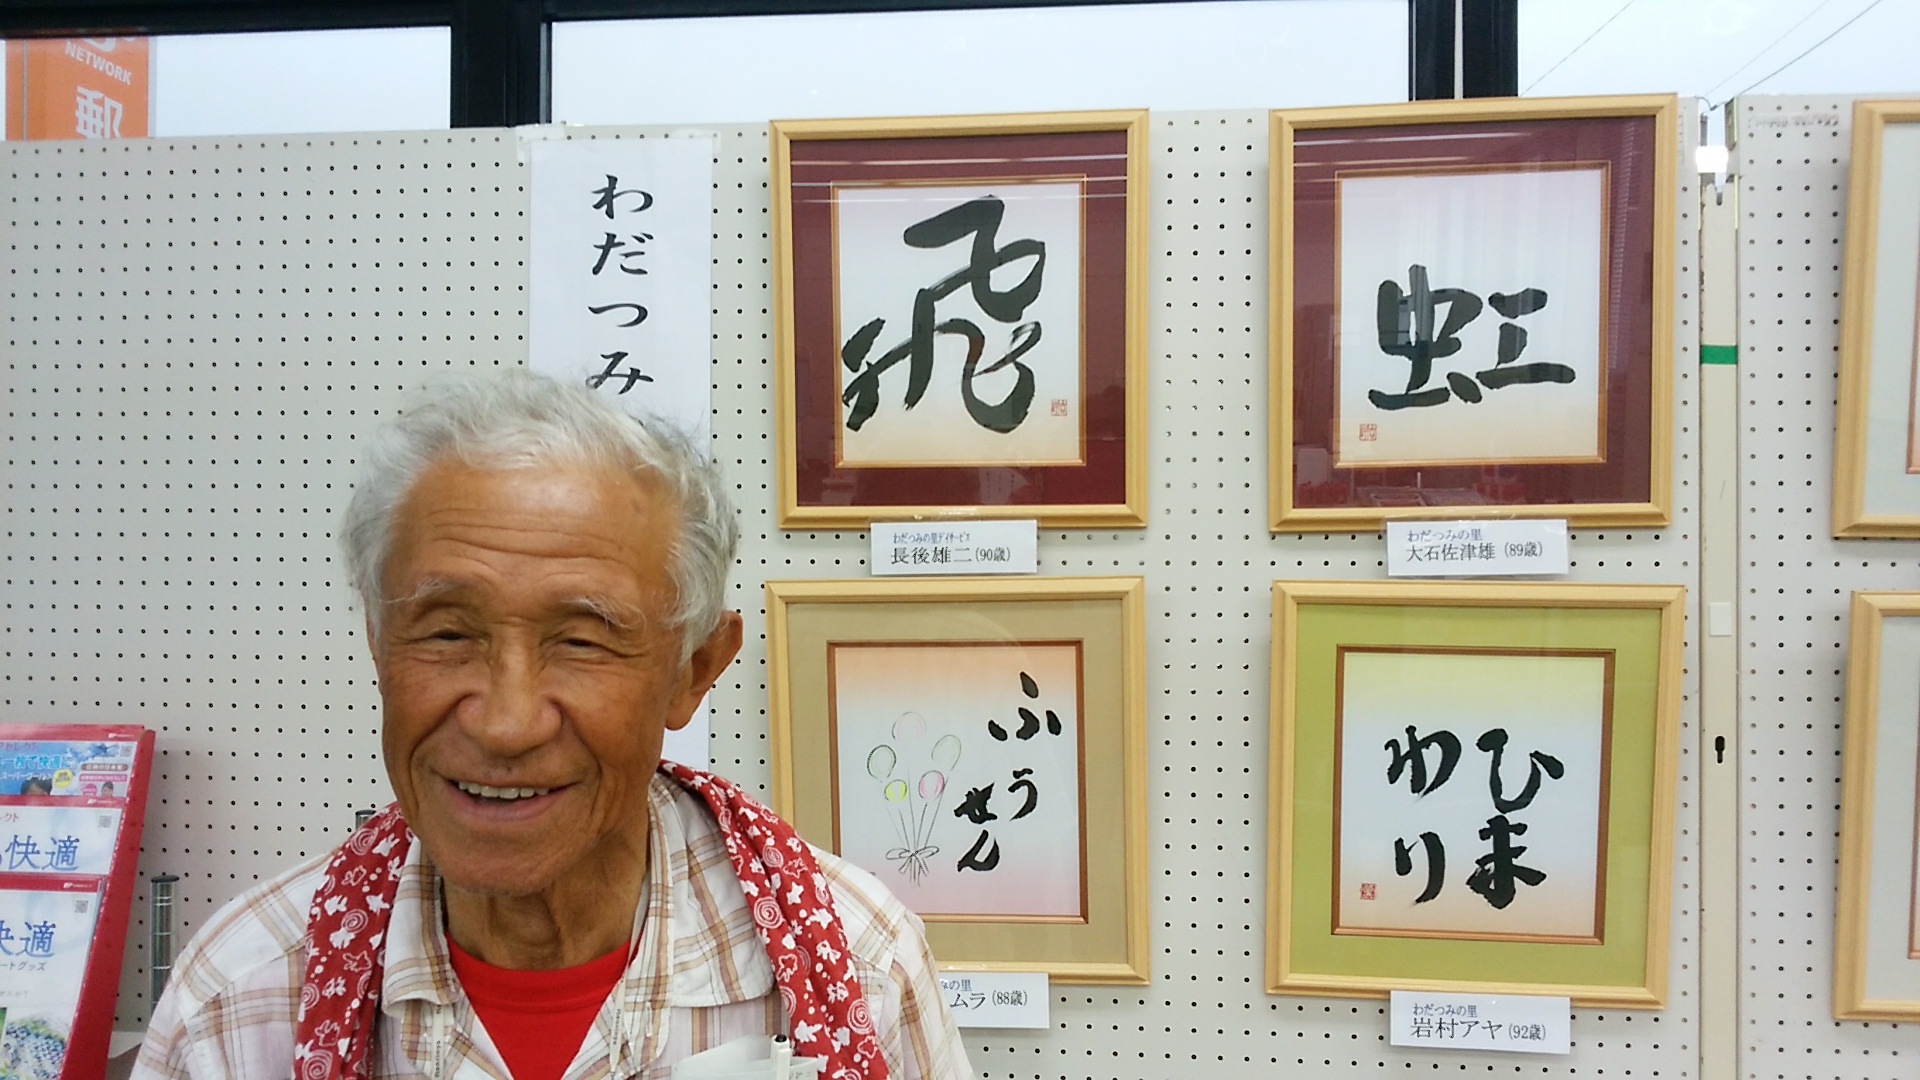 NETWORK
郵
わだつみ
飛
わだつみの里デイサービス
長後雄二(90歳)
虹
わだつみの里
大石佐津雄(89歳)
ふうせん
の里
ムラ(88歳)
ひま
わり
わだつみの里
岩村アヤ(92歳)
快適
快適